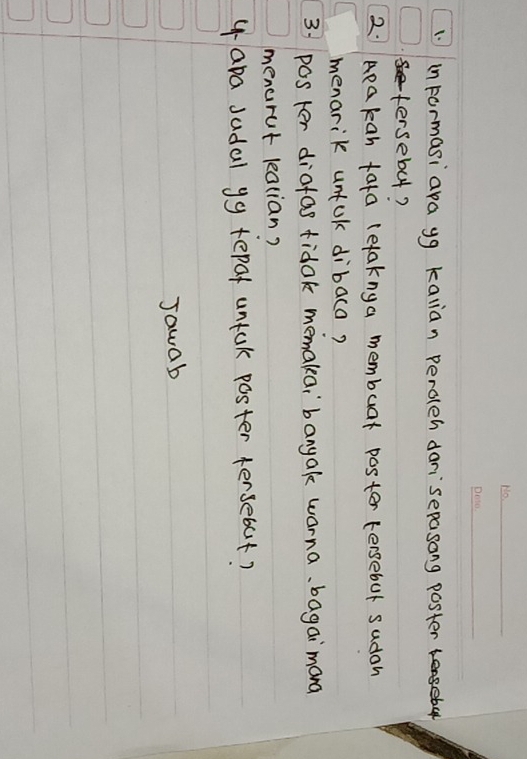 No.
Date.
1. Informasi apa yg kalian peroleh dari sepasang poster tersebut
tersebut?
2. Apakah tata letaknya membuat poster tersebut sudah
menarik untuk dibaca?
3. Poster diatas tidak memakai banyak warna. bagaimana
menurut kalian?
4. apa Judul yg tepat untuk poster tersebut?
Jawab